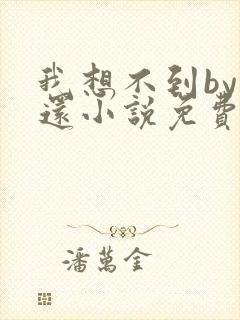 我想不到by
還小說免費
潘萬金